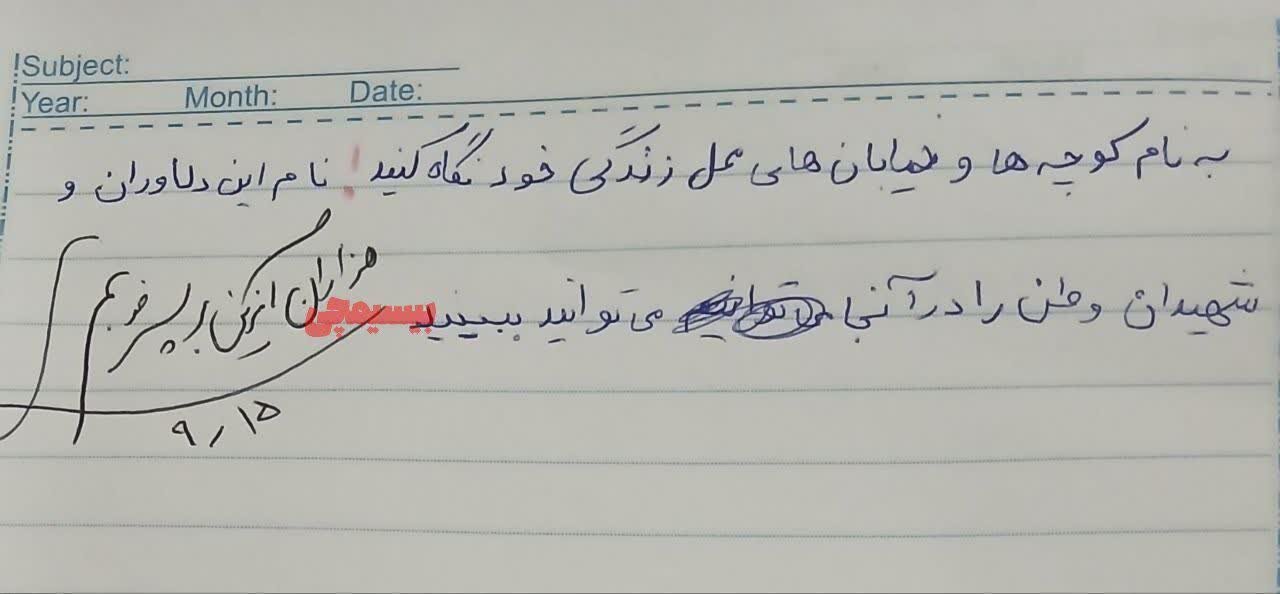 Subject:
Year: Month: Date:
به نام کوچه ها و خیابان های محل زندگی خود نگاه کنید! نام این دلاوران و
شهیدان وطن را در آنجا می توانید ببینید
هزاران آفرین بر پسر خوبم
بیسیوچی
۹/۱۵